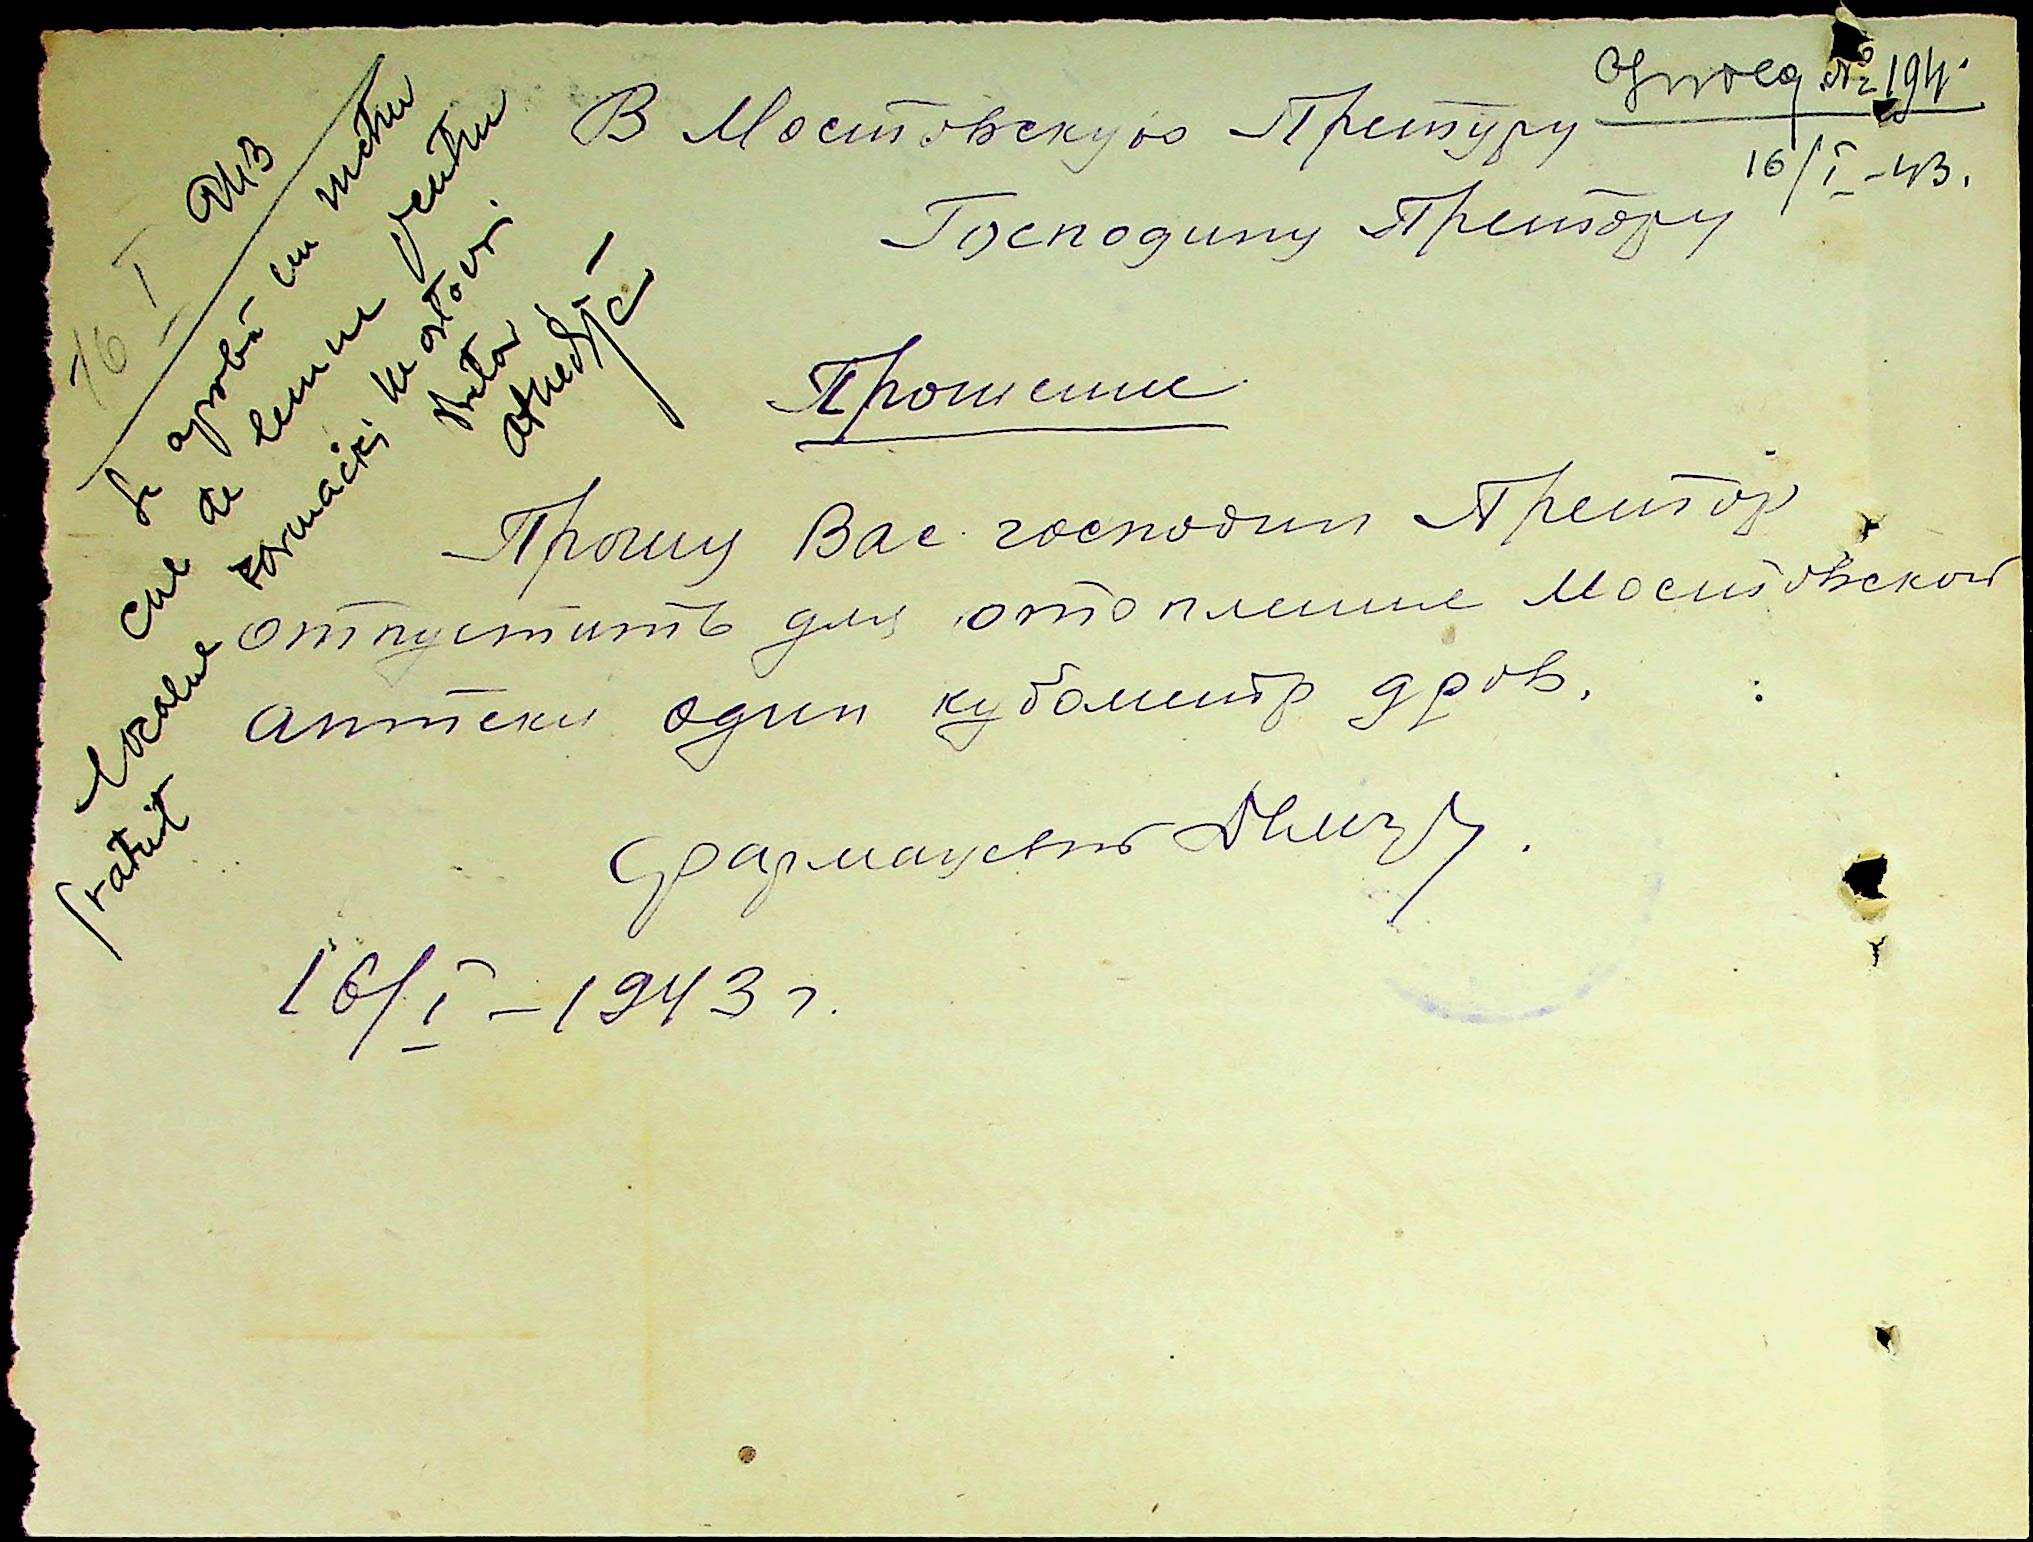 № 194.
16/I-43.
В Мостовскую Претуру
Господину Претору
Прошение
Прошу Вас господин Претор
отпустить для отопление Мостовской
аптеки один кубометр дров.
Фармацевт
16/I-1943 г.
16 I 943
Se aprobă un metru
cub de lemne pentru
localul farmaciei Mostovoi
gratuit
Pretor